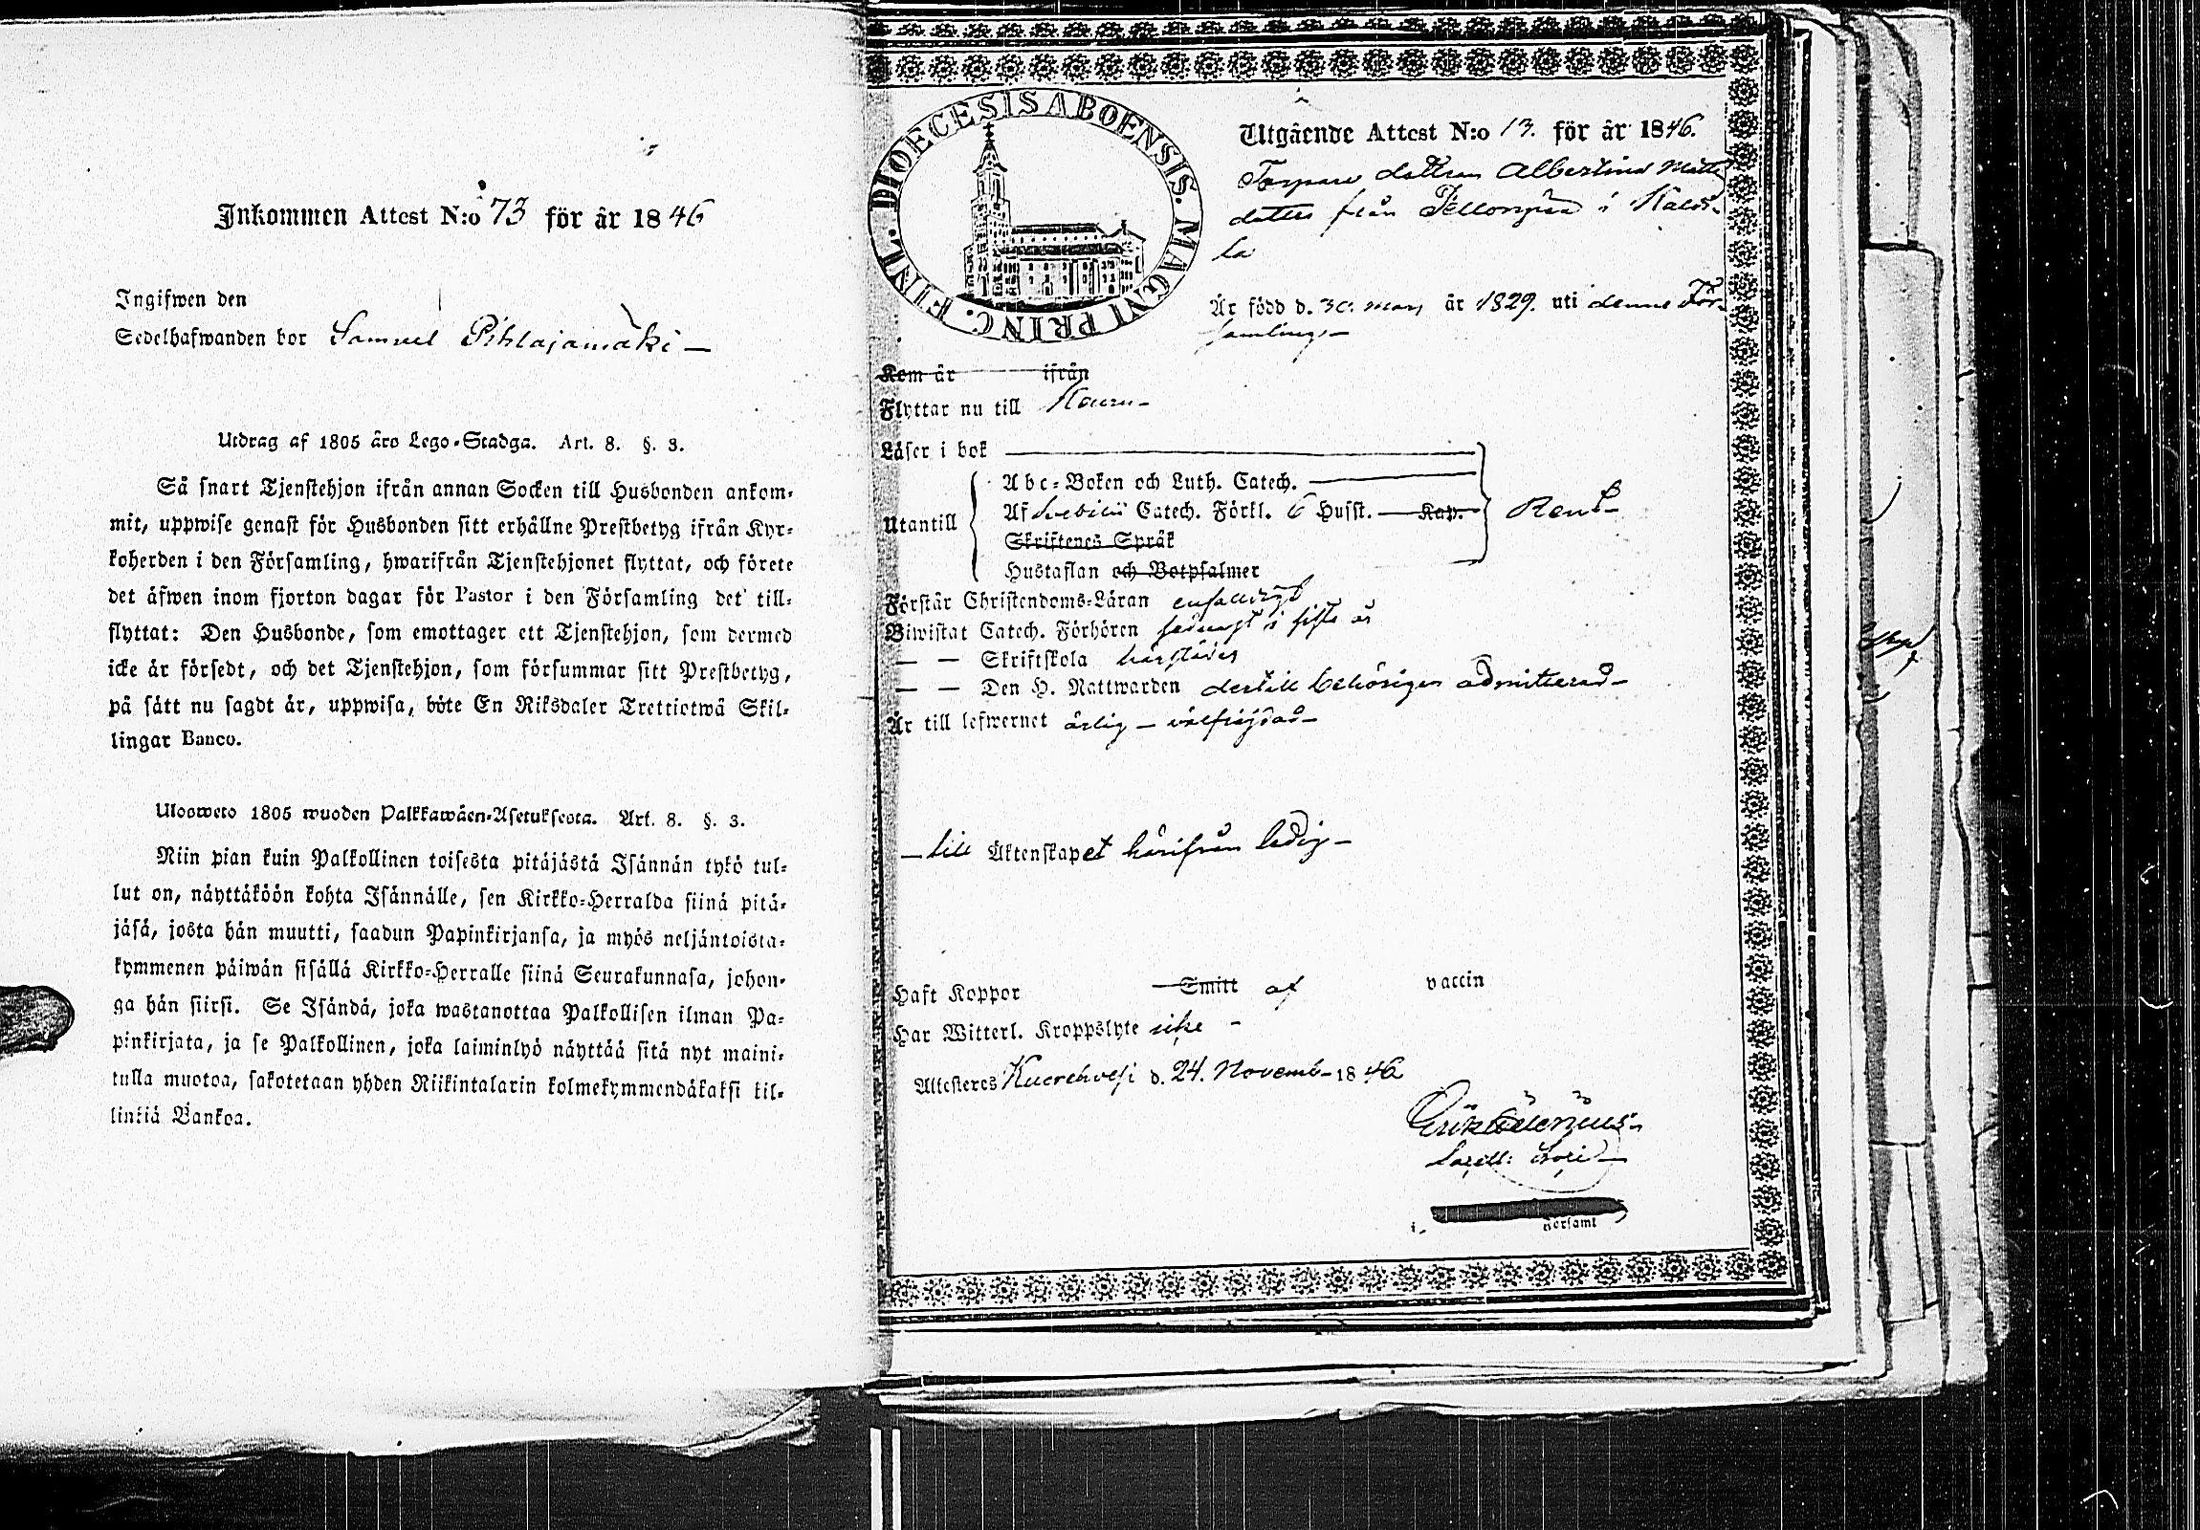 Inkommen Attest N:o 73 för år 1846
Ingifwen den
Sedelhafwanden bor Samuel Pihlajamäki —
Utdrag af 1805 års Lego-Stadga. Art. 8. §. 3.
Så snart Tjenstehjon ifrån annan Socken till Husbonden ankom-
mit, uppwise genast för Husbonden sitt erhållne Prestbetyg ifrån Kyr-
koherden i den Församling, hwarifrån Tjenstehjonet flyttat, och förete
det äfwen inom fjorton dagar för Pastor i den Församling det till-
flyttat: Den Husbonde, som emottager ett Tjenstehjon, som dermed
icke är försedt, och det Tjenstehjon, som försummar sitt Prestbetyg,
på sätt nu sagdt är, uppwisa, böte En Riksdaler Trettiotwå Skil-
lingar Banco.
Ulosweto 1805 wuoden Palkkawäen-Asetuksesta. Art. 8. §. 3.
Niin pian kuin Palkollinen toisesta pitäjästä Isännän tykö tul-
lut on, näyttäköön kohta Isännälle, sen Kirkko-Herralda siinä pitä-
jäsä, josta hän muutti, saadun Papinkirjansa, ja myös neljäntoista-
kymmenen päiwän sisällä Kirkko-Herralle siinä Seurakunnasa, johon-
ga hän siirsi. Se Isändä, joka wastanottaa Palkollisen ilman Pa-
pinkirjata, ja se Palkollinen, joka laiminlyö näyttää sitä nyt maini-
tulla muotoa, sakotetaan yhden Riikintalarin kolmekymmendäkaksi kil-
linkiä Bankoa.
FINL. DIOECESIS ABOENSIS. MAGNI PRINC.
Utgående Attest N:o 13. för år 1846.
Torpare dottren Albertina Matts
dotter från i
la
Är född d. 30. Mars år 1829. uti denna För-
samling. —
Kom år ifrån
Flyttar nu till
Läser i bok
Abc-Boken och Luth. Catech.
Utantill
Af Catech. Förkl. 6 Husst. Kap. Rent —
Skriftenes Språk
Hustaflan och Botpsalmer
Förstår Christendoms-Läran enfaldigt
Biwistat Catech. Förhören sednast i sista år
— — Skriftskola härstädes
— — Den H. Nattwarden dertill behörigen admitterad —
Är till lefwernet ärlig — välfrejdad —
— till Äktenskapet härifrån ledig —
Haft Koppor Smitt af vaccin
Har Witterl. Kroppslyte icke —
Attesteras Kuorehvesi d. 24. Novemb. 1846
Erik
i. Församl